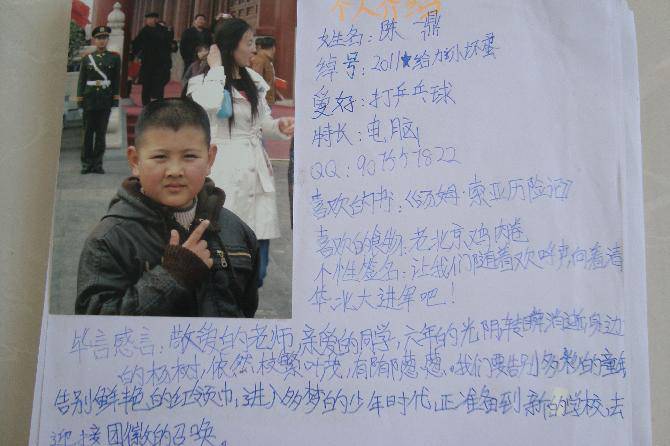 个人介绍
姓名：陈一鼎
绰号：2011★给力小坏蛋
爱好：打乒乓球
特长：电脑
QQ：907557822
喜欢的书：《汤姆·索亚历险记》
喜欢的食物：老北京鸡肉卷
个性签名：让我们随着欢呼声向着清
华北大进军吧！
毕言感言：敬爱的老师，亲爱的同学，六年的光阴转瞬消逝，身边
的杨树，依然枝繁叶茂，有郁郁葱葱。我们要告别多彩的童年
告别鲜艳的红领巾，进入多梦的少年时代，正准备到新的学校，去
迎接团徽的召唤。